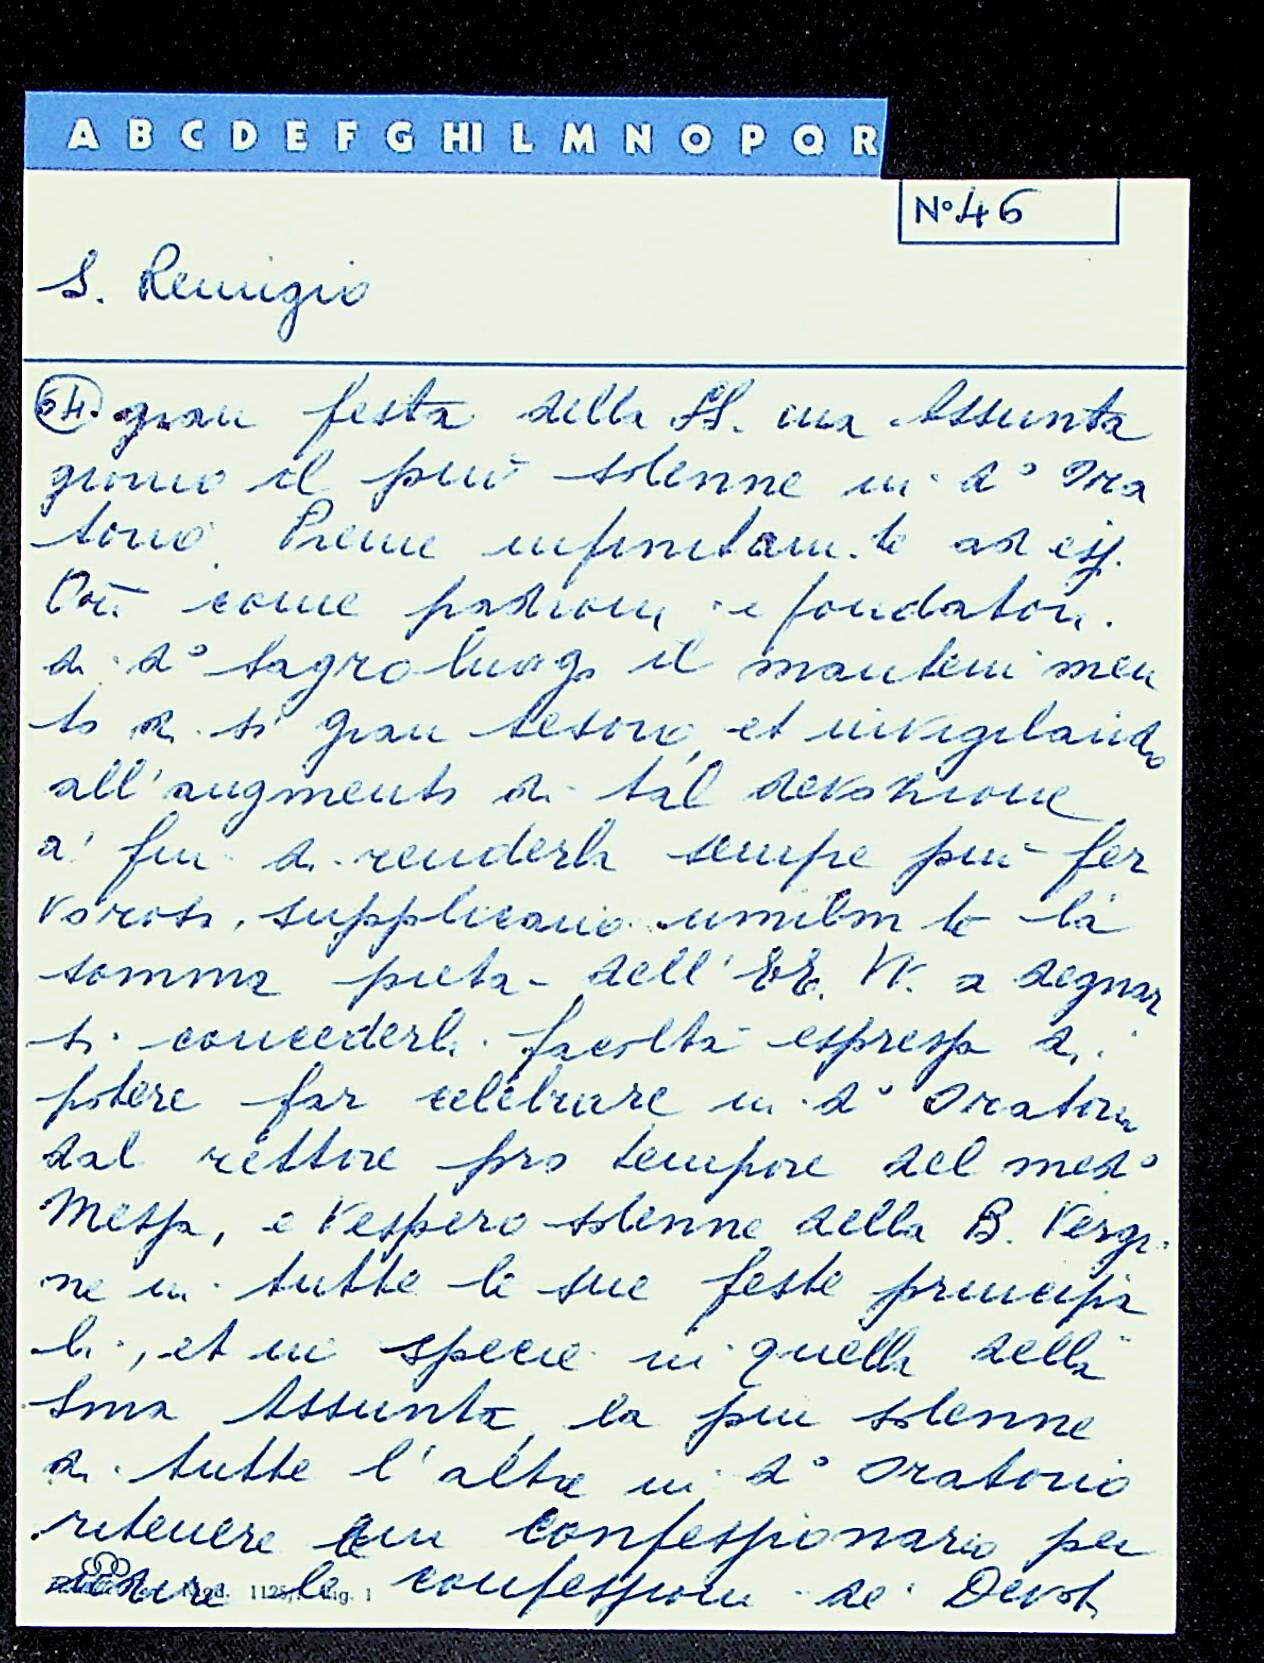 A B C D E F G HI L M N O P Q R
N° 46
S. Remigio
54. gran festa della SS. ma Assunta
giorno il più solenne in d° Ora
torio. Preme infinitam.te ad essi
Ori come padroni e fondatori.
di d° sagro luogo il manteni men
to di sì gran tesoro, et invigilando
all'augmento di tal devozione
a' fin di renderla sempre più fer
vorosa, supplicano umilm te la
somma pietà dell'EE. VV. a degnar
si concederli facoltà espressa di
potere far celebrare in d° Oratorio
dal rettore pro tempore del med°
Messa, e Vespero solenne della B. Vergi
ne in tutte le sue feste principa
li, et in specie in quella della
Sma Assunta, la più solenne
di tutte l'altre in d° Oratorio
ritenere un confessionario per
udire le confessioni de' Devoti
Mod. 1125/ 1